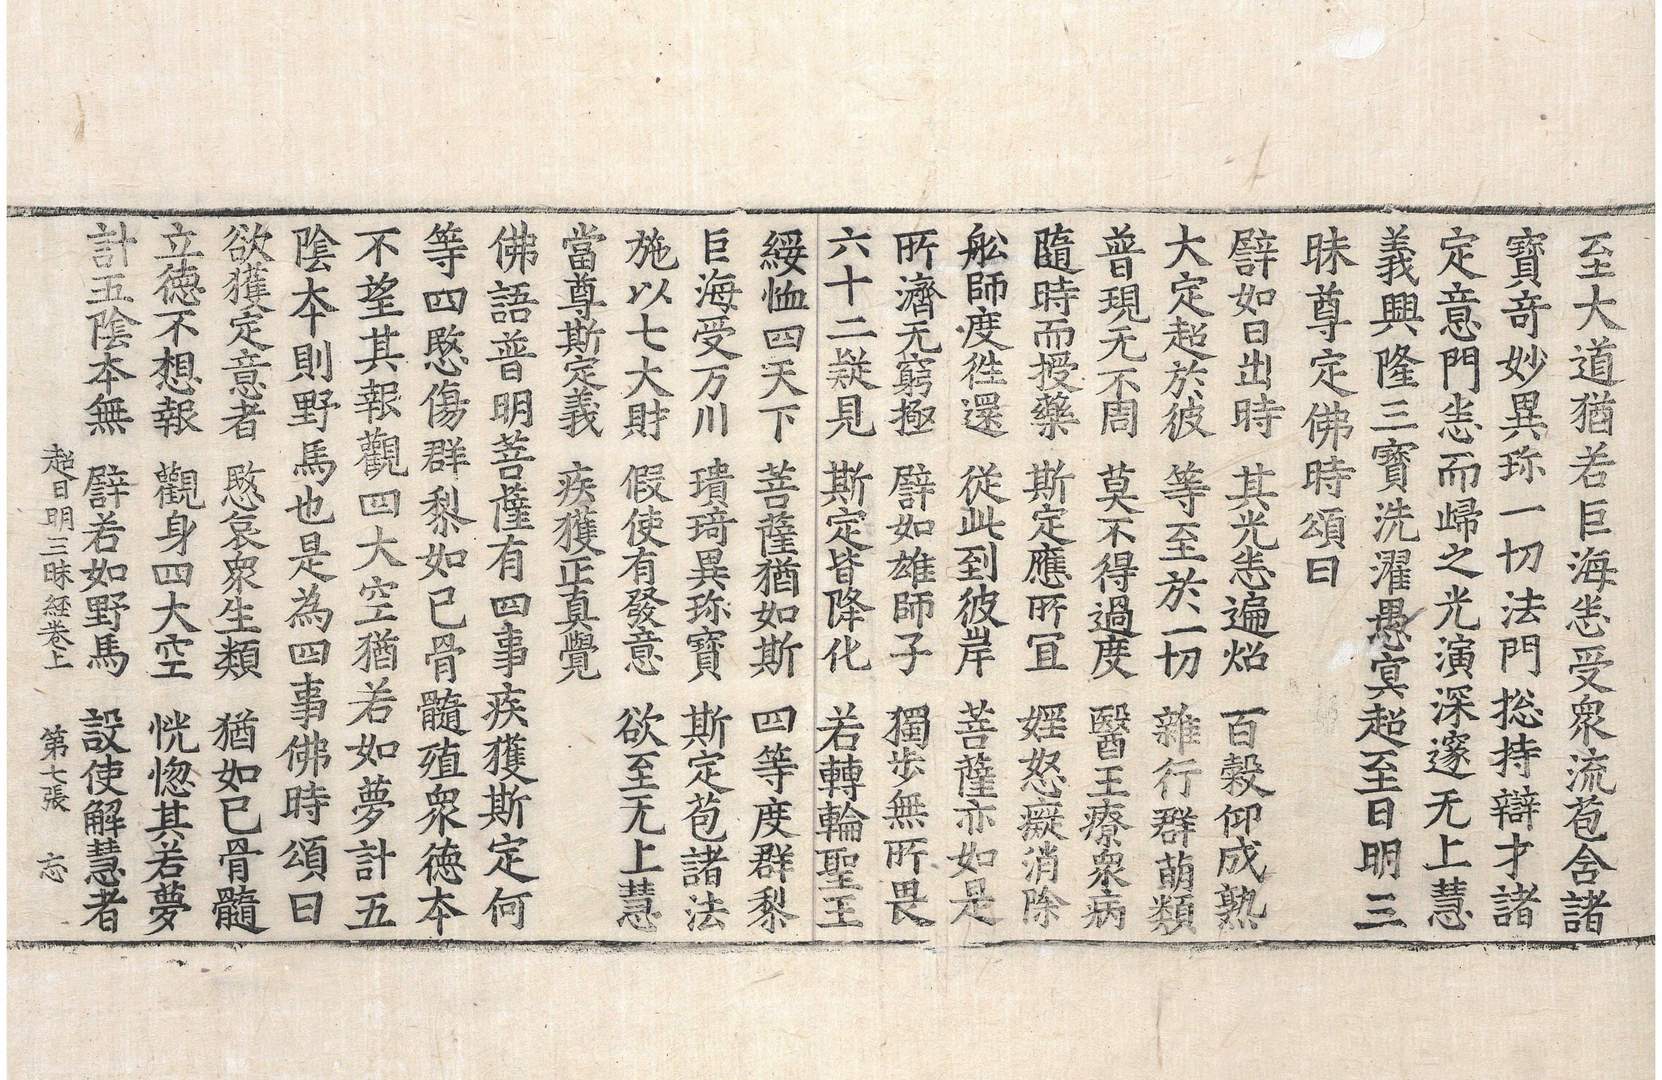 至大道猶若巨海恙受衆流苞含諸
寶奇妙異珎一切法門捴持辯才諸
定意門恙而歸之光演深邃无上慧
義興隆三寶洗濯愚冥超至日明三
昧尊定佛時頌曰
譬如日出時 其光恙遍炤 百穀仰成熟
大定超於彼 等至於一切 雜行群萌類
普現无不周 莫不得過度 醫王療衆病
隨時而授藥 斯定應所宜 婬怒癡消除
舩師度往還 從此到彼岸 菩薩亦如是
所濟无窮極 譬如雄師子 獨步無所畏
六十二疑見 斯定皆降化 若轉輪聖王
綏恤四天下 菩薩猶如斯 四等度群黎
巨海受万川 璝琦異珎寶 斯定苞諸法
施以七大財 假使有發意 欲至无上慧
當尊斯定義 疾獲正真覺
佛語普明菩薩有四事疾獲斯定何
等四愍傷群黎如已骨髓殖衆德本
不望其報觀四大空猶若如夢計五
陰本則野馬也是為四事佛時頌曰
欲獲定意者 愍哀衆生類 猶如已骨髓
立德不想報 觀身四大空 恍惚其若夢
計五陰本無 譬若如野馬 設使解慧者
超日明三昧経卷上 第七張 忘